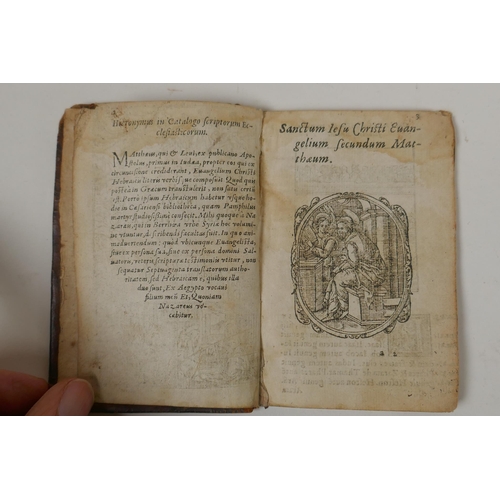 Hieronymus in Catalogo scriptorum Ec-
clesiasticorum.
MAtthæus, qui & Leui, ex publicano Apo-
stolus, primus in Iudæa, propter eos qui ex
circuncisione crediderant, Euangelium Christi
Hebraicis literis verbisque composuit Quod quis
postea in Græcum transtulerit, non satis certum
est. Porrò ipsum Hebraicum habetur vsque ho-
die in Cæsariensi bibliotheca, quam Pamphilus
martyr studiosissimè confecit. Mihi quoque à Na-
zaræis, qui in Berrhœa vrbe Syriæ hoc volumine
vtuntur, describendi facultas fuit. In quo ani-
maduertendum: quòd vbicunque Euangelista,
siue ex persona sua, siue ex persona domini Sal-
uatoris, veteris scripturæ testimoniis vtitur, non
sequatur Septuaginta translatorum autho-
ritatem, sed Hebraicam è quibus illa
duo sunt, Ex Aegypto vocaui
filium meū Et, Quoniam
Nazareus vo-
cabitur.
Sanctum Iesu Christi Euan-
gelium secundum Mat-
thæum.